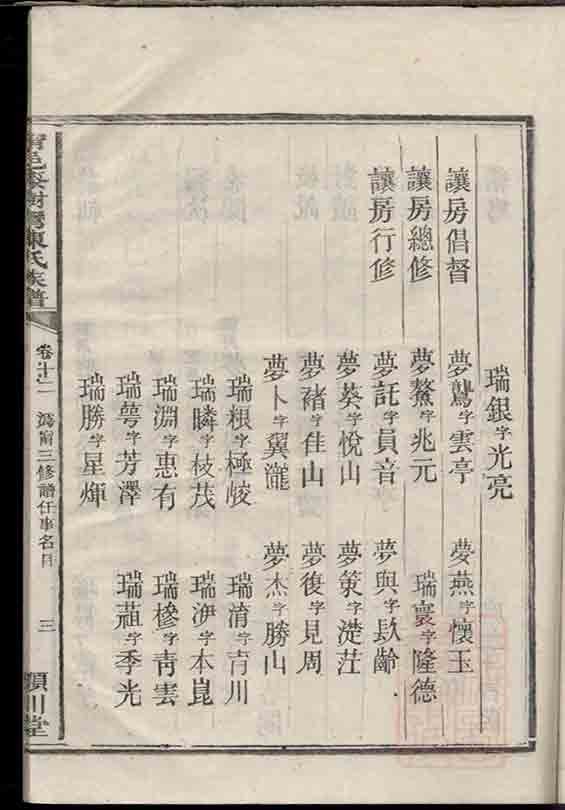 瑞銀字光亮
讓房倡督 夢鸞字雲亭 夢燕字懷玉
讓房總修 夢鰲字兆元 瑞寰字隆德
讓房行修 夢託字員音 夢與字歐齡
夢葵字悅山 夢策字蓗莊
夢褚字佳山 夢復字見周
夢卜字翼瀧 夢杰字勝山
瑞根字極峻 瑞淯字青川
瑞瞵字枝茂 瑞洢字本崑
瑞淵字惠有 瑞檖字青雲
瑞萼字芳澤 瑞蒩字季光
瑞勝字星煇
陳氏族譜
卷十二 溈甯三修譜任事名目 三 潁川堂